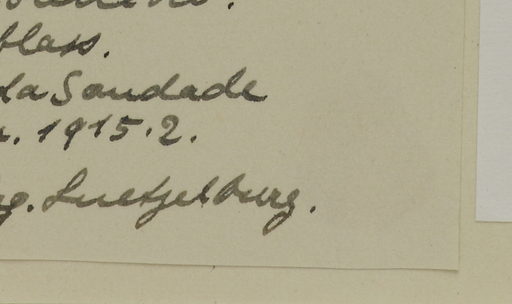 blass.
da Saudade
. 1915.2.
g. Luetzelburg.